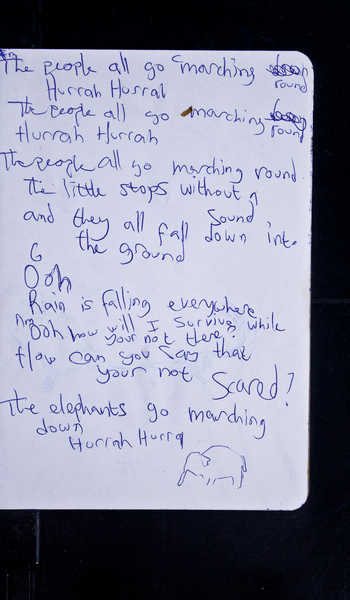 Em
The people all go marching
round
Hurrah Hurrah
The people all go marching
round
Hurrah Hurrah
The people all go marching round
The little stops without
a
Sound
and they all fall down into
the ground
G
Ooh
Rain is falling everywhere
Am
Ooh how will I survive while
your not there?
How can you say that
your not Scared?
The elephants go marching
down
Hurrah Hurra